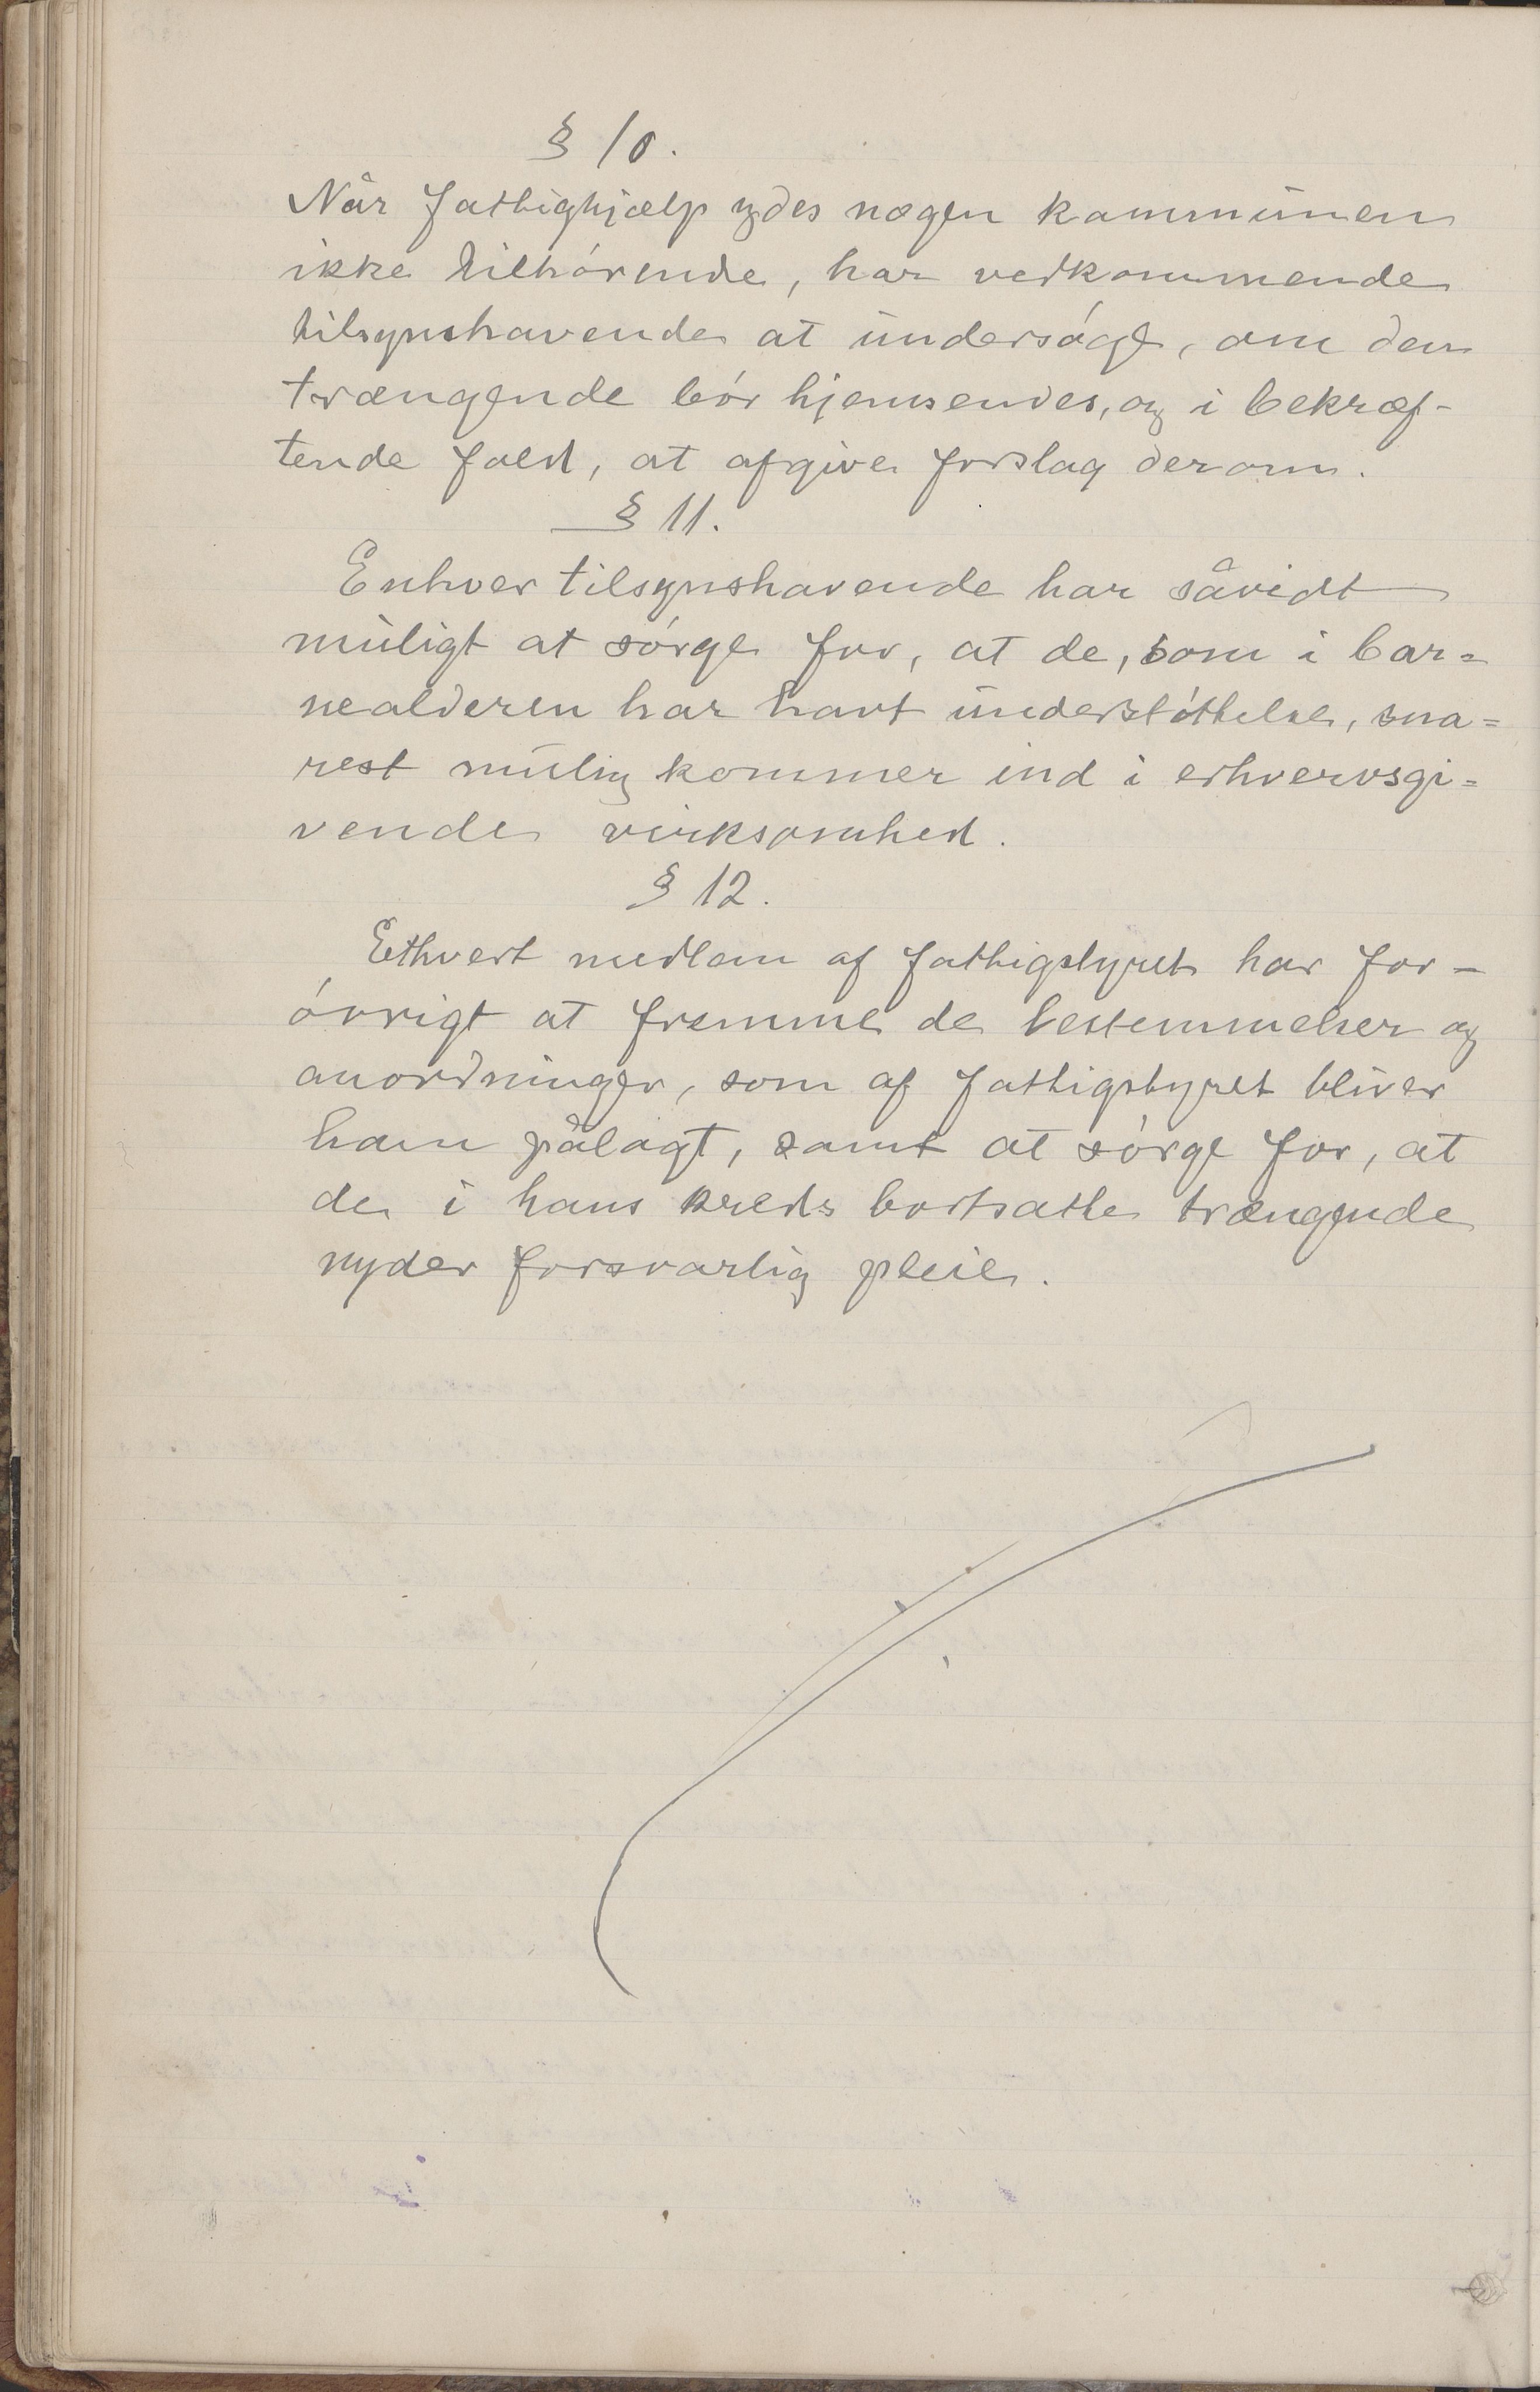 § 10.
Når fattighjælp ydes nogen kommunen
ikke tilhørende, har vedkommende
tilsynshavende at undersøge, om den
trængende bør hjemsendes, og i bekræf-
tende fald, at afgive forslag derom.
§ 11.
Enhver tilsynshavende har såvidt
muligt at sørge for, at de, som i bar=
nealderen har havt understøttelse, sna=
rest mulig kommer ind i erhvervsgi=
vende virksomhed.
§ 12.
Ethvert medlem af fattigstyret har for-
øvrigt at fremme de bestemmelser og
anordninger, som af fattigstyret bliver
ham pålagt, samt at sørge for, at
de i hans kreds bortsatte trængende
nyder forsvarlig pleie.